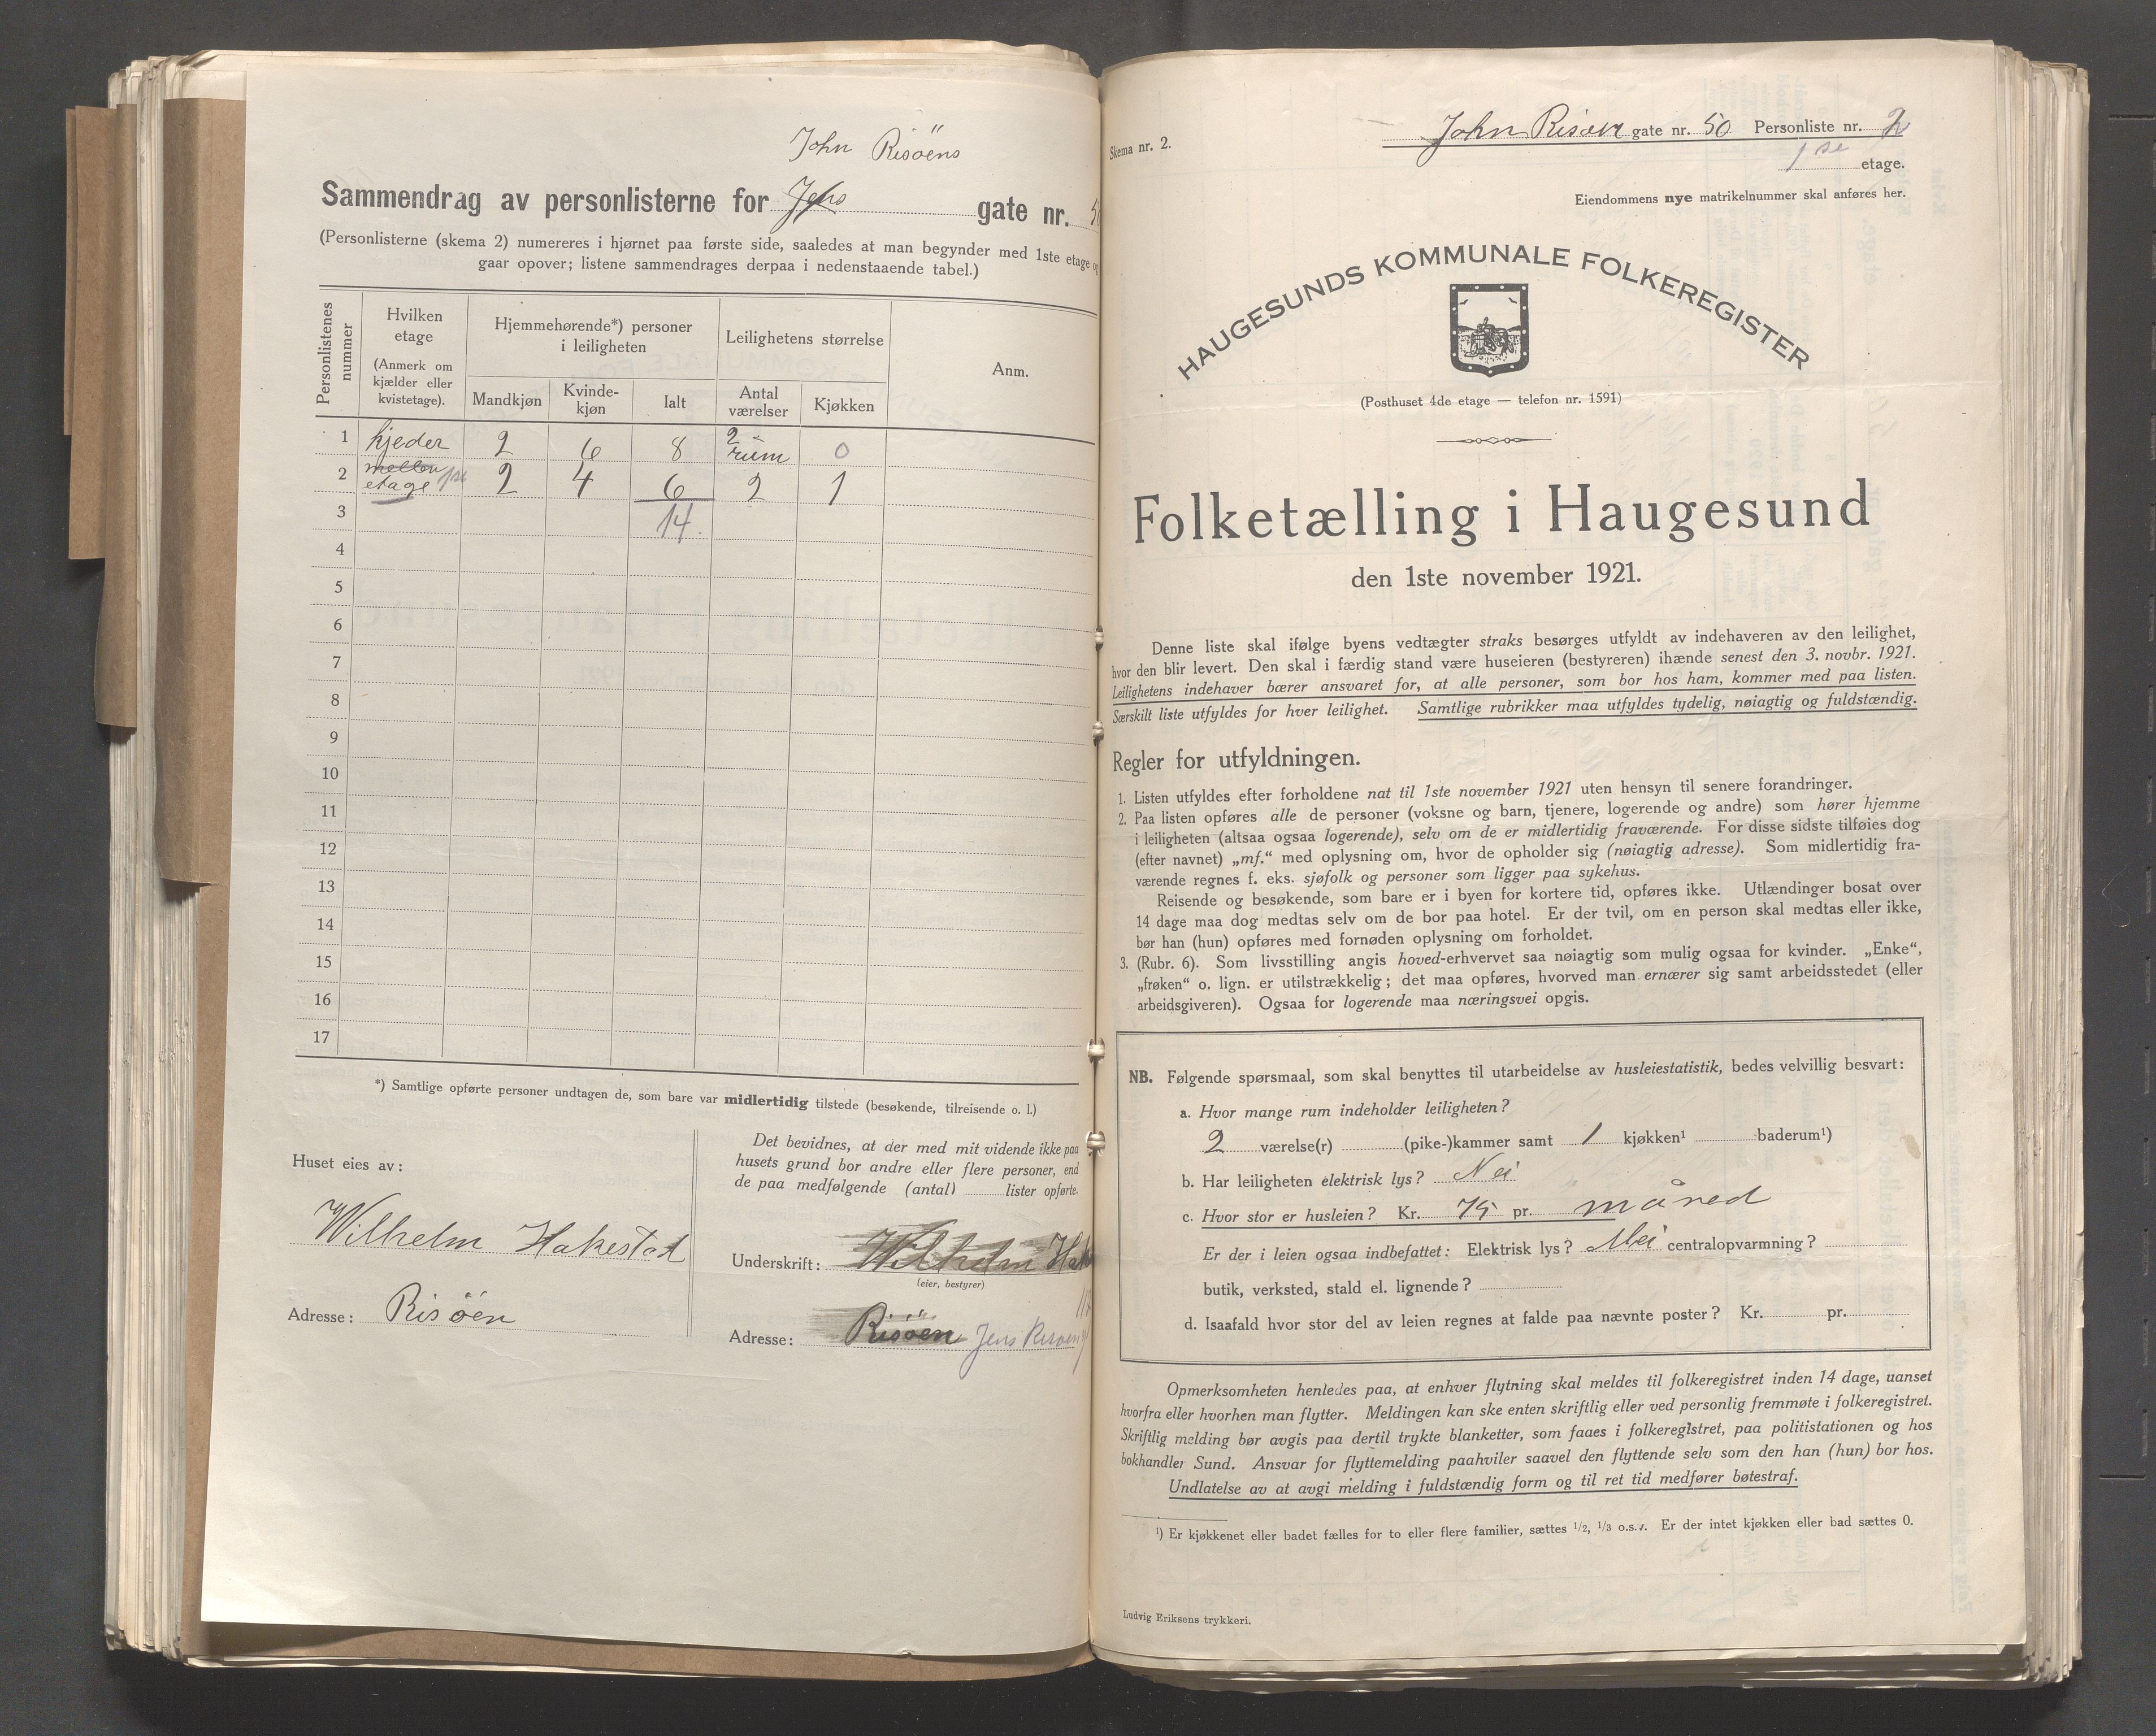 John Risöens
Sammendrag av personlisterne for Jens gate nr. 50
(Personlisterne (skema 2) numereres i hjørnet paa første side, saaledes at man begynder med 1ste etage og
gaar opover; listene sammendrages derpaa i nedenstaaende tabel.)
Personlistenes nummer
Hvilken etage
(Anmerk om kjælder eller kvistetage).
Hjemmehørende*) personer i leiligheten
Mandkjøn
Kvindekjøn
Ialt
Leilighetens størrelse
Antal værelser
Kjøkken
Anm.
1 kjeder 2 6 8 2 rüm 0
2 mellem etage 1ste 2 4 6 2 1
3 14.
4
5
6
7
8
9
10
11
12
13
14
15
16
17
*) Samtlige opførte personer undtagen de, som bare var midlertidig tilstede (besøkende, tilreisende o. l.)
Huset eies av:
Wilhelm Hakestad
Adresse: Risöen
Det bevidnes, at der med mit vidende ikke paa
husets grund bor andre eller flere personer, end
de paa medfølgende (antal) lister opførte.
Underskrift: Wilhelm Hak
(eier, bestyrer)
Adresse: Risöen Jens Risoen
Skema nr. 2.
John Risøen gate nr. 50 Personliste nr. 2
1ste etage.
Eiendommens nye matrikelnummer skal anføres her.
HAUGESUNDS KOMMUNALE FOLKEREGISTER
(Posthuset 4de etage — telefon nr. 1591)
Folketælling i Haugesund
den 1ste november 1921.
Denne liste skal ifølge byens vedtægter straks besørges utfyldt av indehaveren av den leilighet,
hvor den blir levert. Den skal i færdig stand være huseieren (bestyreren) ihænde senest den 3. novbr. 1921.
Leilighetens indehaver bærer ansvaret for, at alle personer, som bor hos ham, kommer med paa listen.
Særskilt liste utfyldes for hver leilighet. Samtlige rubrikker maa utfyldes tydelig, nøiagtig og fuldstændig.
Regler for utfyldningen.
1. Listen utfyldes efter forholdene nat til 1ste november 1921 uten hensyn til senere forandringer.
2. Paa listen opføres alle de personer (voksne og barn, tjenere, logerende og andre) som hører hjemme
i leiligheten (altsaa ogsaa logerende), selv om de er midlertidig fraværende. For disse sidste tilføies dog
(efter navnet) „mf.“ med oplysning om, hvor de opholder sig (nøiagtig adresse). Som midlertidig fra-
værende regnes f. eks. sjøfolk og personer som ligger paa sykehus.
Reisende og besøkende, som bare er i byen for kortere tid, opføres ikke. Utlændinger bosat over
14 dage maa dog medtas selv om de bor paa hotel. Er der tvil, om en person skal medtas eller ikke,
bør han (hun) opføres med fornøden oplysning om forholdet.
3. (Rubr. 6). Som livsstilling angis hoved-erhvervet saa nøiagtig som mulig ogsaa for kvinder. „Enke“,
„frøken“ o. lign. er utilstrækkelig; det maa opføres, hvorved man ernærer sig samt arbeidsstedet (eller
arbeidsgiveren). Ogsaa for logerende maa næringsvei opgis.
NB. Følgende spørsmaal, som skal benyttes til utarbeidelse av husleiestatistik, bedes velvillig besvart:
a. Hvor mange rum indeholder leiligheten?
2 værelse(r) (pike-)kammer samt 1 kjøkken¹ baderum¹)
b. Har leiligheten elektrisk lys? Nei
c. Hvor stor er husleien? Kr. 75 pr. måned
Er der i leien ogsaa indbefattet: Elektrisk lys? Nei centralopvarmning?
butik, verksted, stald el. lignende?
d. Isaafald hvor stor del av leien regnes at falde paa nævnte poster? Kr. pr.
Opmerksomheten henledes paa, at enhver flytning skal meldes til folkeregistret inden 14 dage, uanset
hvorfra eller hvorhen man flytter. Meldingen kan ske enten skriftlig eller ved personlig fremmøte i folkeregistret.
Skriftlig melding bør avgis paa dertil trykte blanketter, som faaes i folkeregistret, paa politistationen og hos
bokhandler Sund. Ansvar for flyttemelding paahviler saavel den flyttende selv som den han (hun) bor hos.
Undlatelse av at avgi melding i fuldstændig form og til ret tid medfører bøtestraf.
¹) Er kjøkkenet eller badet fælles for to eller flere familier, sættes 1/2, 1/3 o.s.v. Er der intet kjøkken eller bad sættes 0.
Ludvig Eriksens trykkeri.